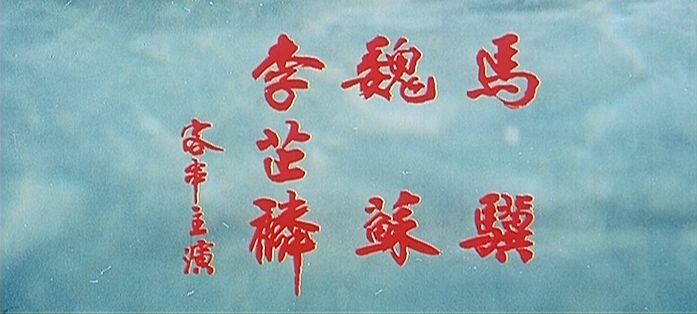 馬驥
魏蘇
李芷麟
客串主演